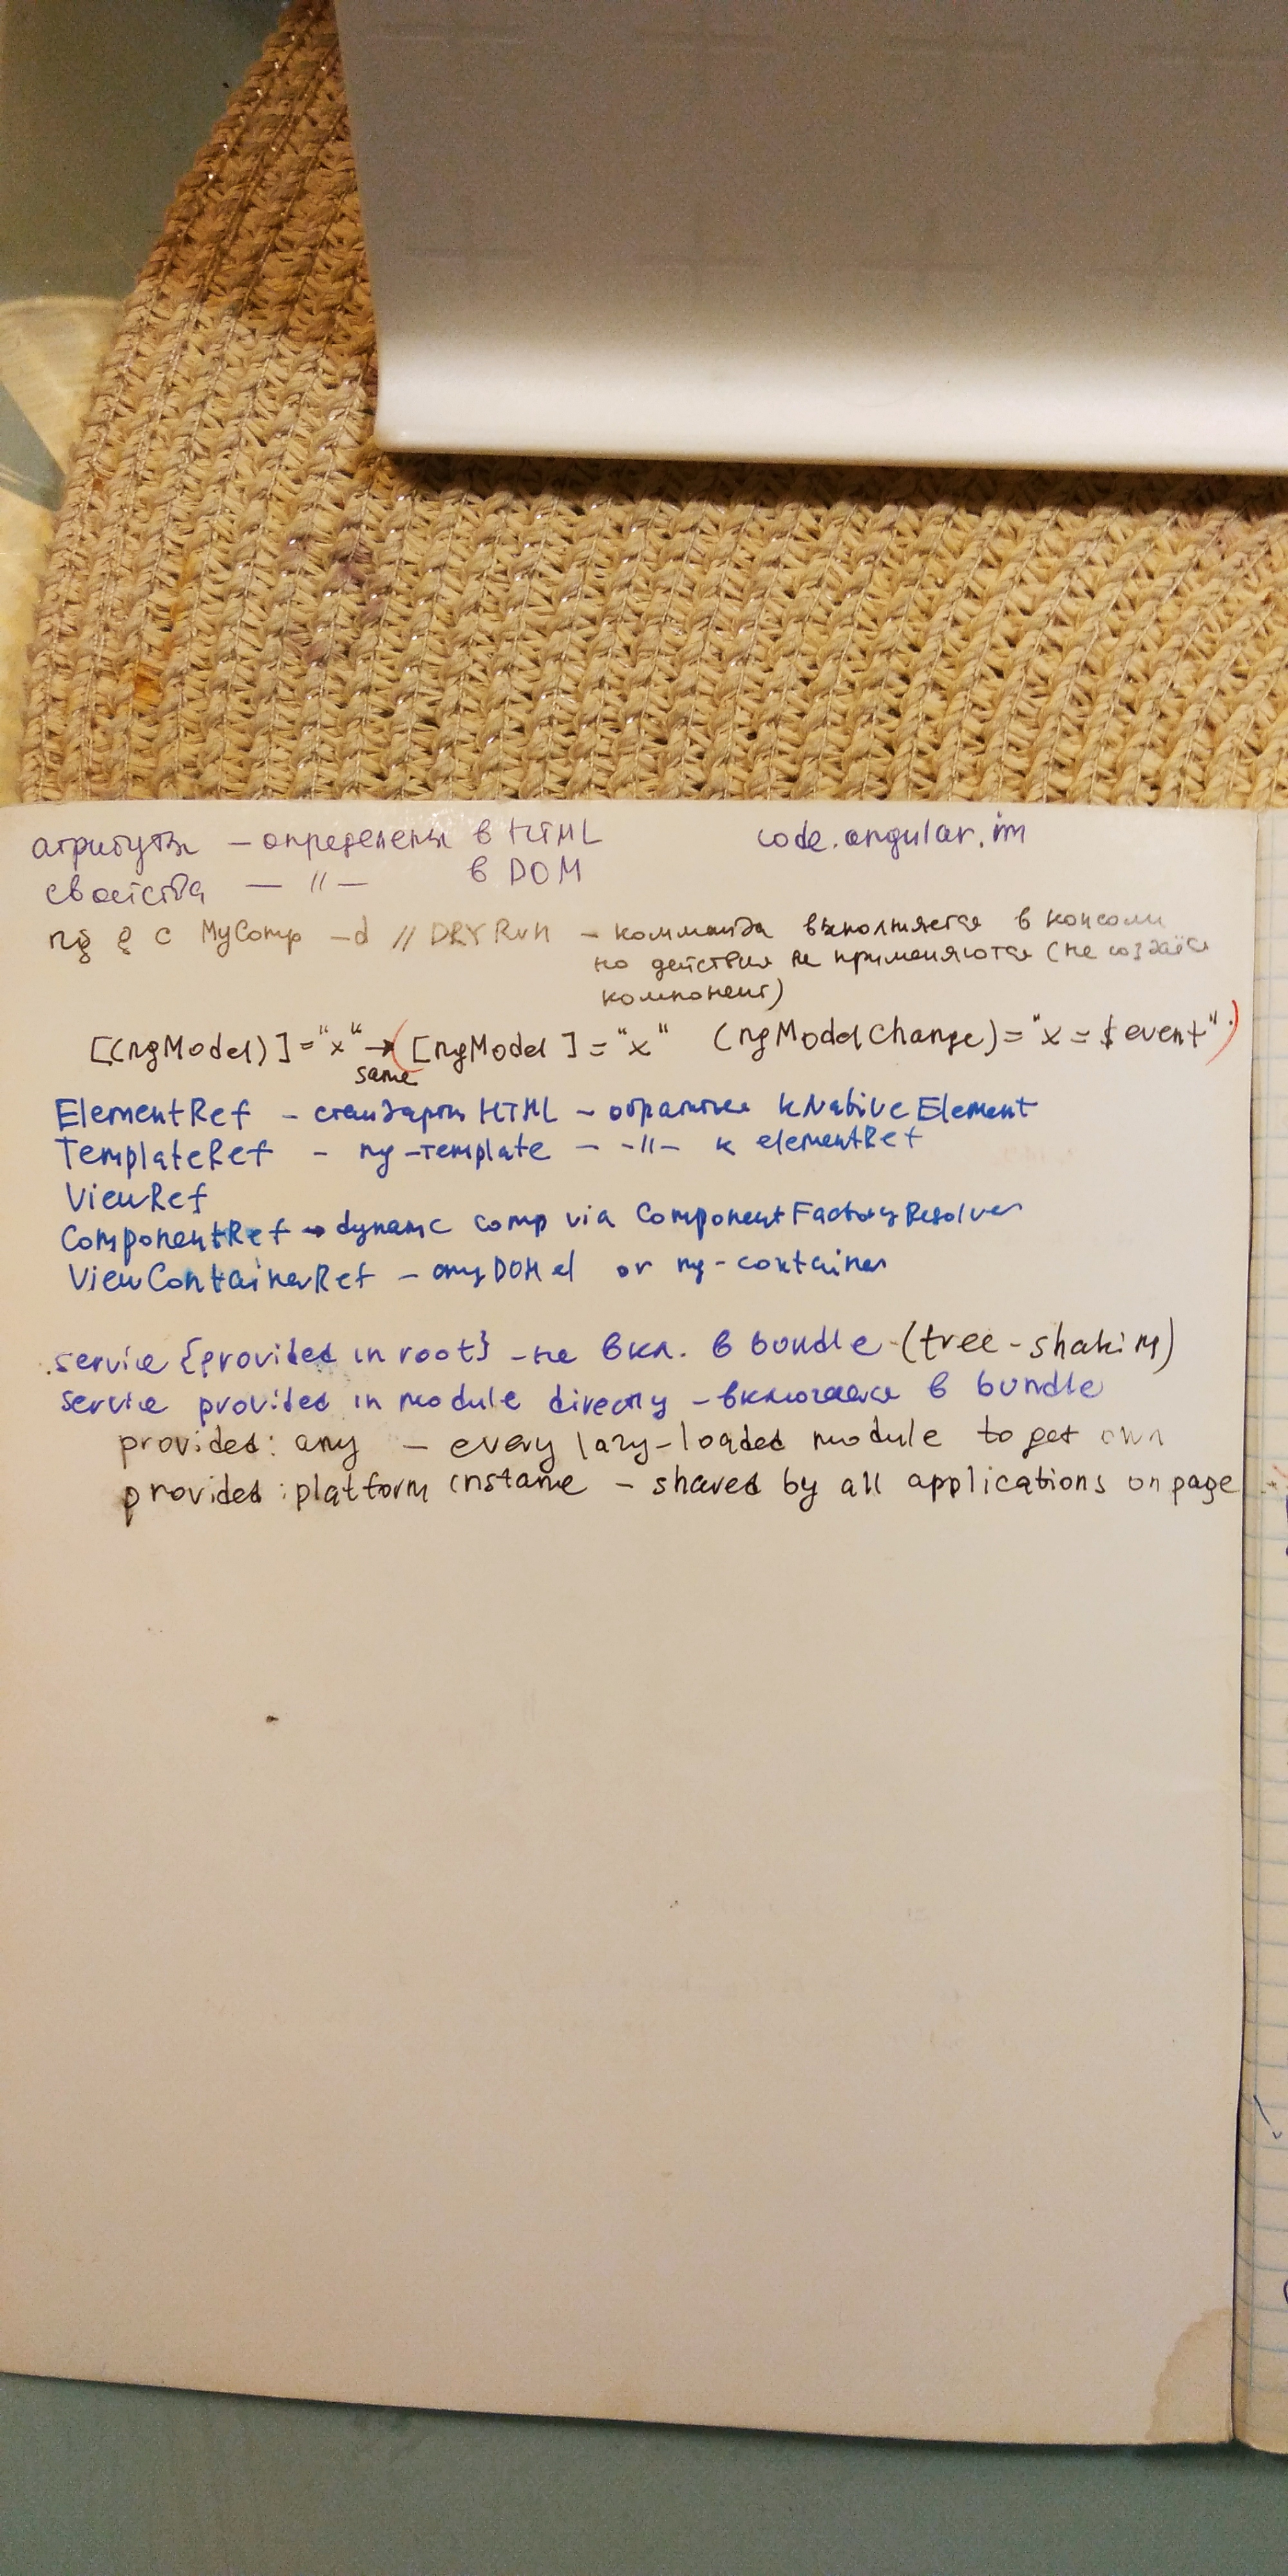 атрибуты — определены в HTML
code.angular.im
свойства — // — в DOM
ng g c MyComp -d // DRY RUN - комманда выполняется в консоли
но действия не применяются (не создаётся
компонент)
[(ngModel)] = "x" → ([ngModel] = "x" (ngModelChange) = "x = $event")
same
ElementRef - стандартн HTML - обратиться к NativeElement
TemplateRef - ng-template - -//- к elementRef
ViewRef
ComponentRef → dynamc comp via ComponentFactoryResolver
ViewContainerRef - any DOM el or ng-container
service {provided in root} - не вкл. в bundle - (tree-shakim)
service provided in module directly - включается в bundle
provided: any - every lazy-loaded module to get own
provided: platform instance - shared by all applications on page